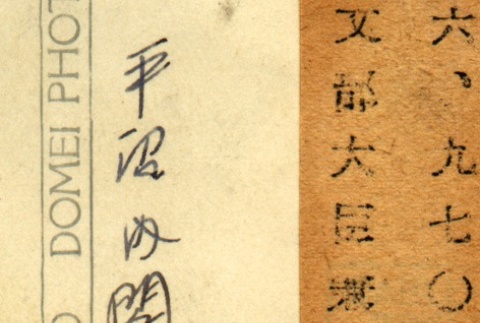 六、九七〇
文部大臣兼
平沼内閣
DOMEI PHOT